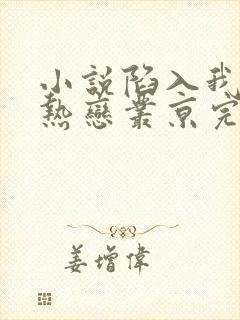 小說陷入我
熱戀叢京完
姜增偉